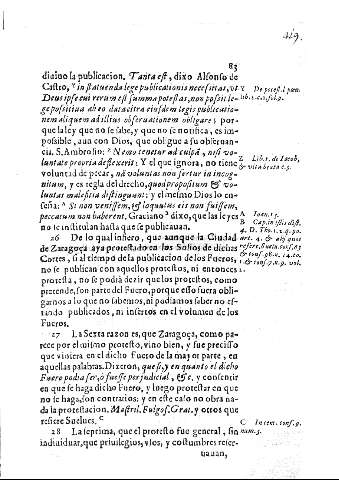 83
diaſuo la publicacion. Tanta eſt, dixo Alfonſo de
Caſtro, Y in ſtatuenda lege publicationis neceſsitas, vt
Deus ipſe cui rerum eſt ſumma poteſtas, non poſsit le-
ge poſitiua abſque data citra eiuſdem legis publicatio-
nem aliquem ad illius obſeruationem obligare; por-
que la ley que no ſe ſabe, y que no ſe notifica, es im-
poſsible, aun con Dios, que obligue a ſu obſeruan-
ci. S. Ambroſio: Z Nemo tenetur ad culpā, niſi vo-
luntate propria deflexerit: Y el que ignora, no tiene
voluntad de pecar, nā voluntas non fertur in incog-
nitum, y es regla del derecho, quod propoſitum & vo-
luntas maleficia diſtinguunt: y el meſmo Dios lo en-
ſeña: A Si non veniſſem, & loquutus eis non fuiſſem,
peccatum non haberent. Graciano B dixo, que las leyes
no inſtituian haſta que ſe publicauan.
26 De lo qual infiero, que aunque la Ciudad
de Zaragoça aya proteſtado en los Solios de dichas
Cortes, ſi al tiempo de la publicacion de los Fueros,
no ſe publican con aquellos proteſtos, ni entonces
proteſta, no ſe podrà dezir que los proteſtos, como
pretende, ſon parte del Fuero, porque eſſo fuera obli-
garnos a lo que no ſabemos, ni podiamos ſaber no eſ-
tando publicados, ni inſertos en el volumen de los
Fueros.
27 La Sexta razon es, que Zaragoça, como pa-
rece por el miſmo proteſto, vino bien, y fue preciſſo
que viniera en el dicho Fuero de la mayor parte, en
aquellas palabras. Dizeron, que ſi, y en quanto el dicho
Fuero podia ſer, ò fueſſe perjudicial, &c. y conſentir
en que ſe haga dicho Fuero, y luego proteſtar en que
no ſe haga, ſon contrarios: y en eſte caſo no obra na-
da la proteſtacion. Maſtril. Fulgoſ. Grat. y otros que
refiere Suelues. C
28 La ſeptima, que el proteſto fue general, ſin
indiuiduar, que priuilegios, vſos, y coſtumbres reſer-
uauan,
Y De poteſt. l. pœn.
lib. 1. c. 1. fol. 9.
Z Lib. 1. de Iacob,
& vita beata c. 3.
A Ioan. 15.
B Cap. in iſtis diſt.
4. D. Tho. 1. 2. q. 90.
art. 4. & alij quos
refert Suelu. conſ. 8.
C In cent. conſ. 9.
num. 5.